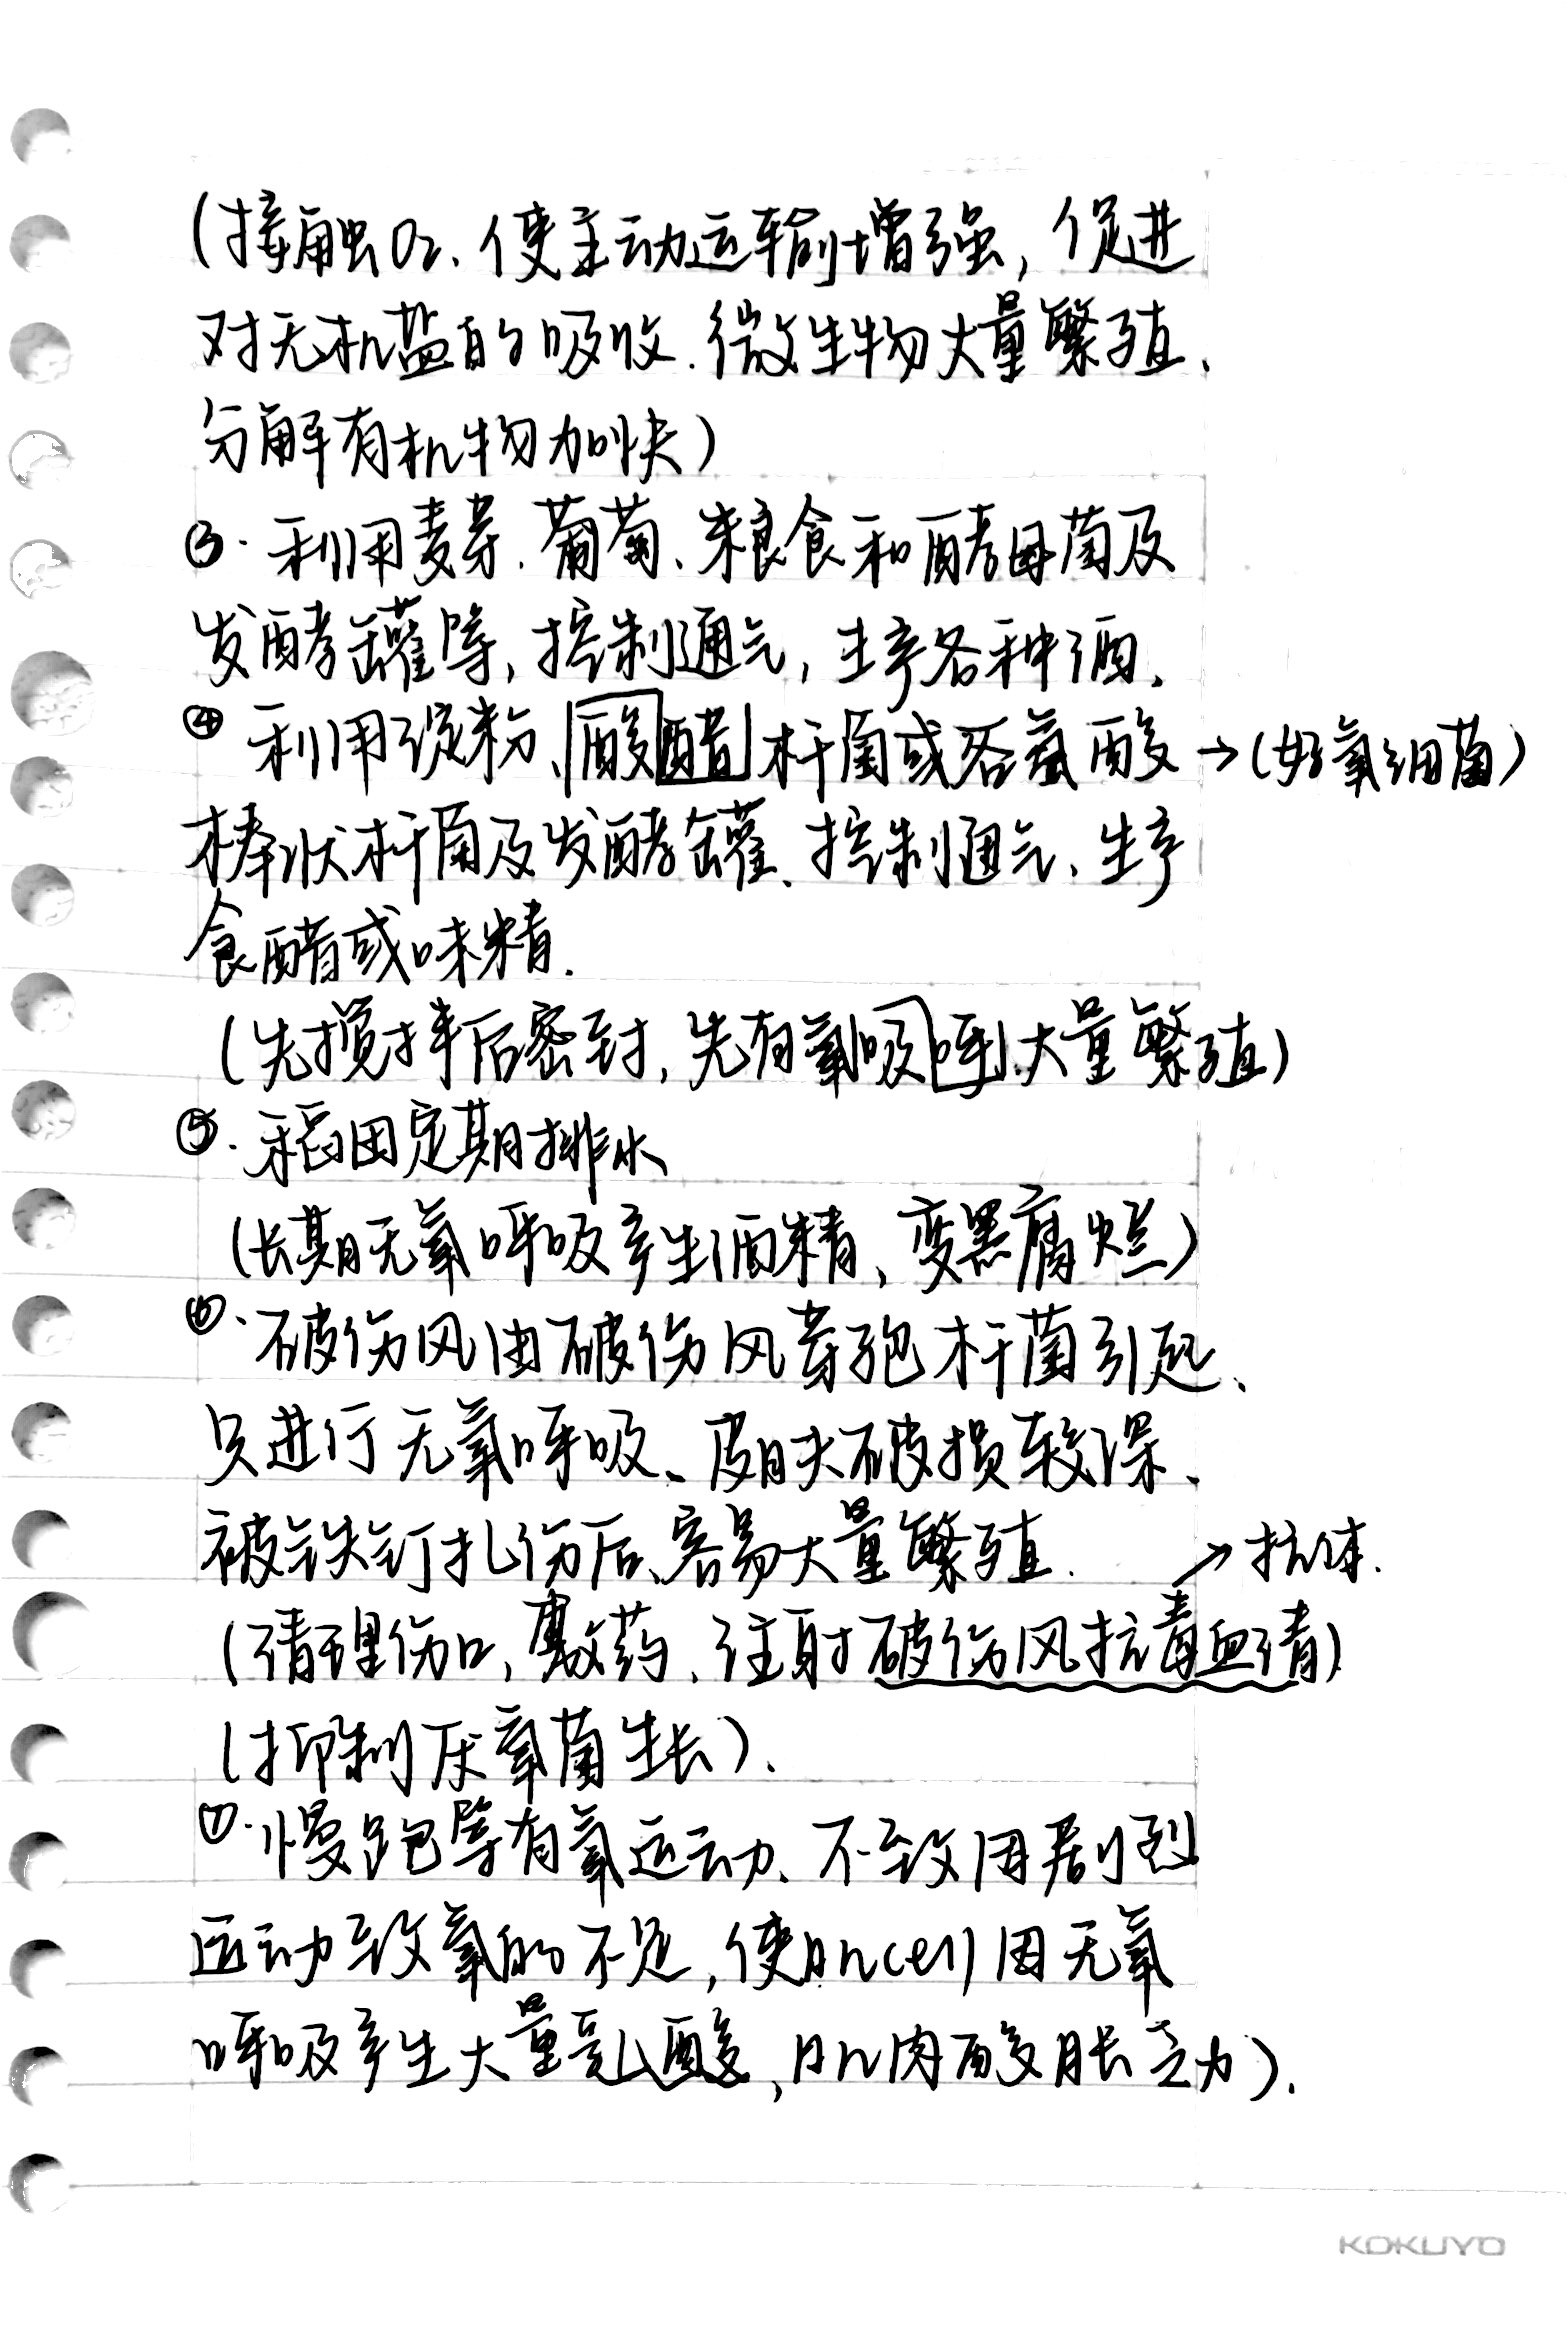 (接触O₂、使主动运输增强, 促进
对无机盐的吸收. 微生物大量繁殖、
分解有机物加快)
③. 利用麦芽. 葡萄、粮食和酵母菌及
发酵罐等, 控制通气, 生产各种酒、
④ 利用淀粉、酸醋杆菌或谷氨酸 → (好氧细菌)
棒状杆菌及发酵罐、控制通气、生产
食醋或味精.
(先搅拌后密封, 先有氧吸呼、大量繁殖)
⑤. 稻田定期排水
(长期无氧呼吸产生酒精、变黑腐烂)
⑥. 破伤风由破伤风芽孢杆菌引起、
只进行无氧呼吸、皮肤破损较深、
被铁钉扎伤后、容易大量繁殖.
→ 抗体.
(清理伤口, 敷药、注射破伤风抗毒血清)
(抑制厌氧菌生长).
⑦. 慢跑等有氧运动、不致因剧烈
运动致氧的不足, 使肌cell因无氧
呼吸产生大量乳酸, 肌肉酸胀乏力).
KOKUYO